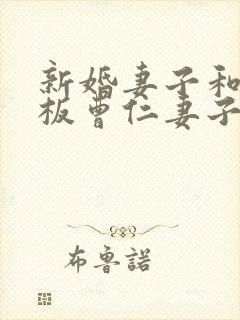 新婚妻子和
板曹仁妻子
布鲁諾